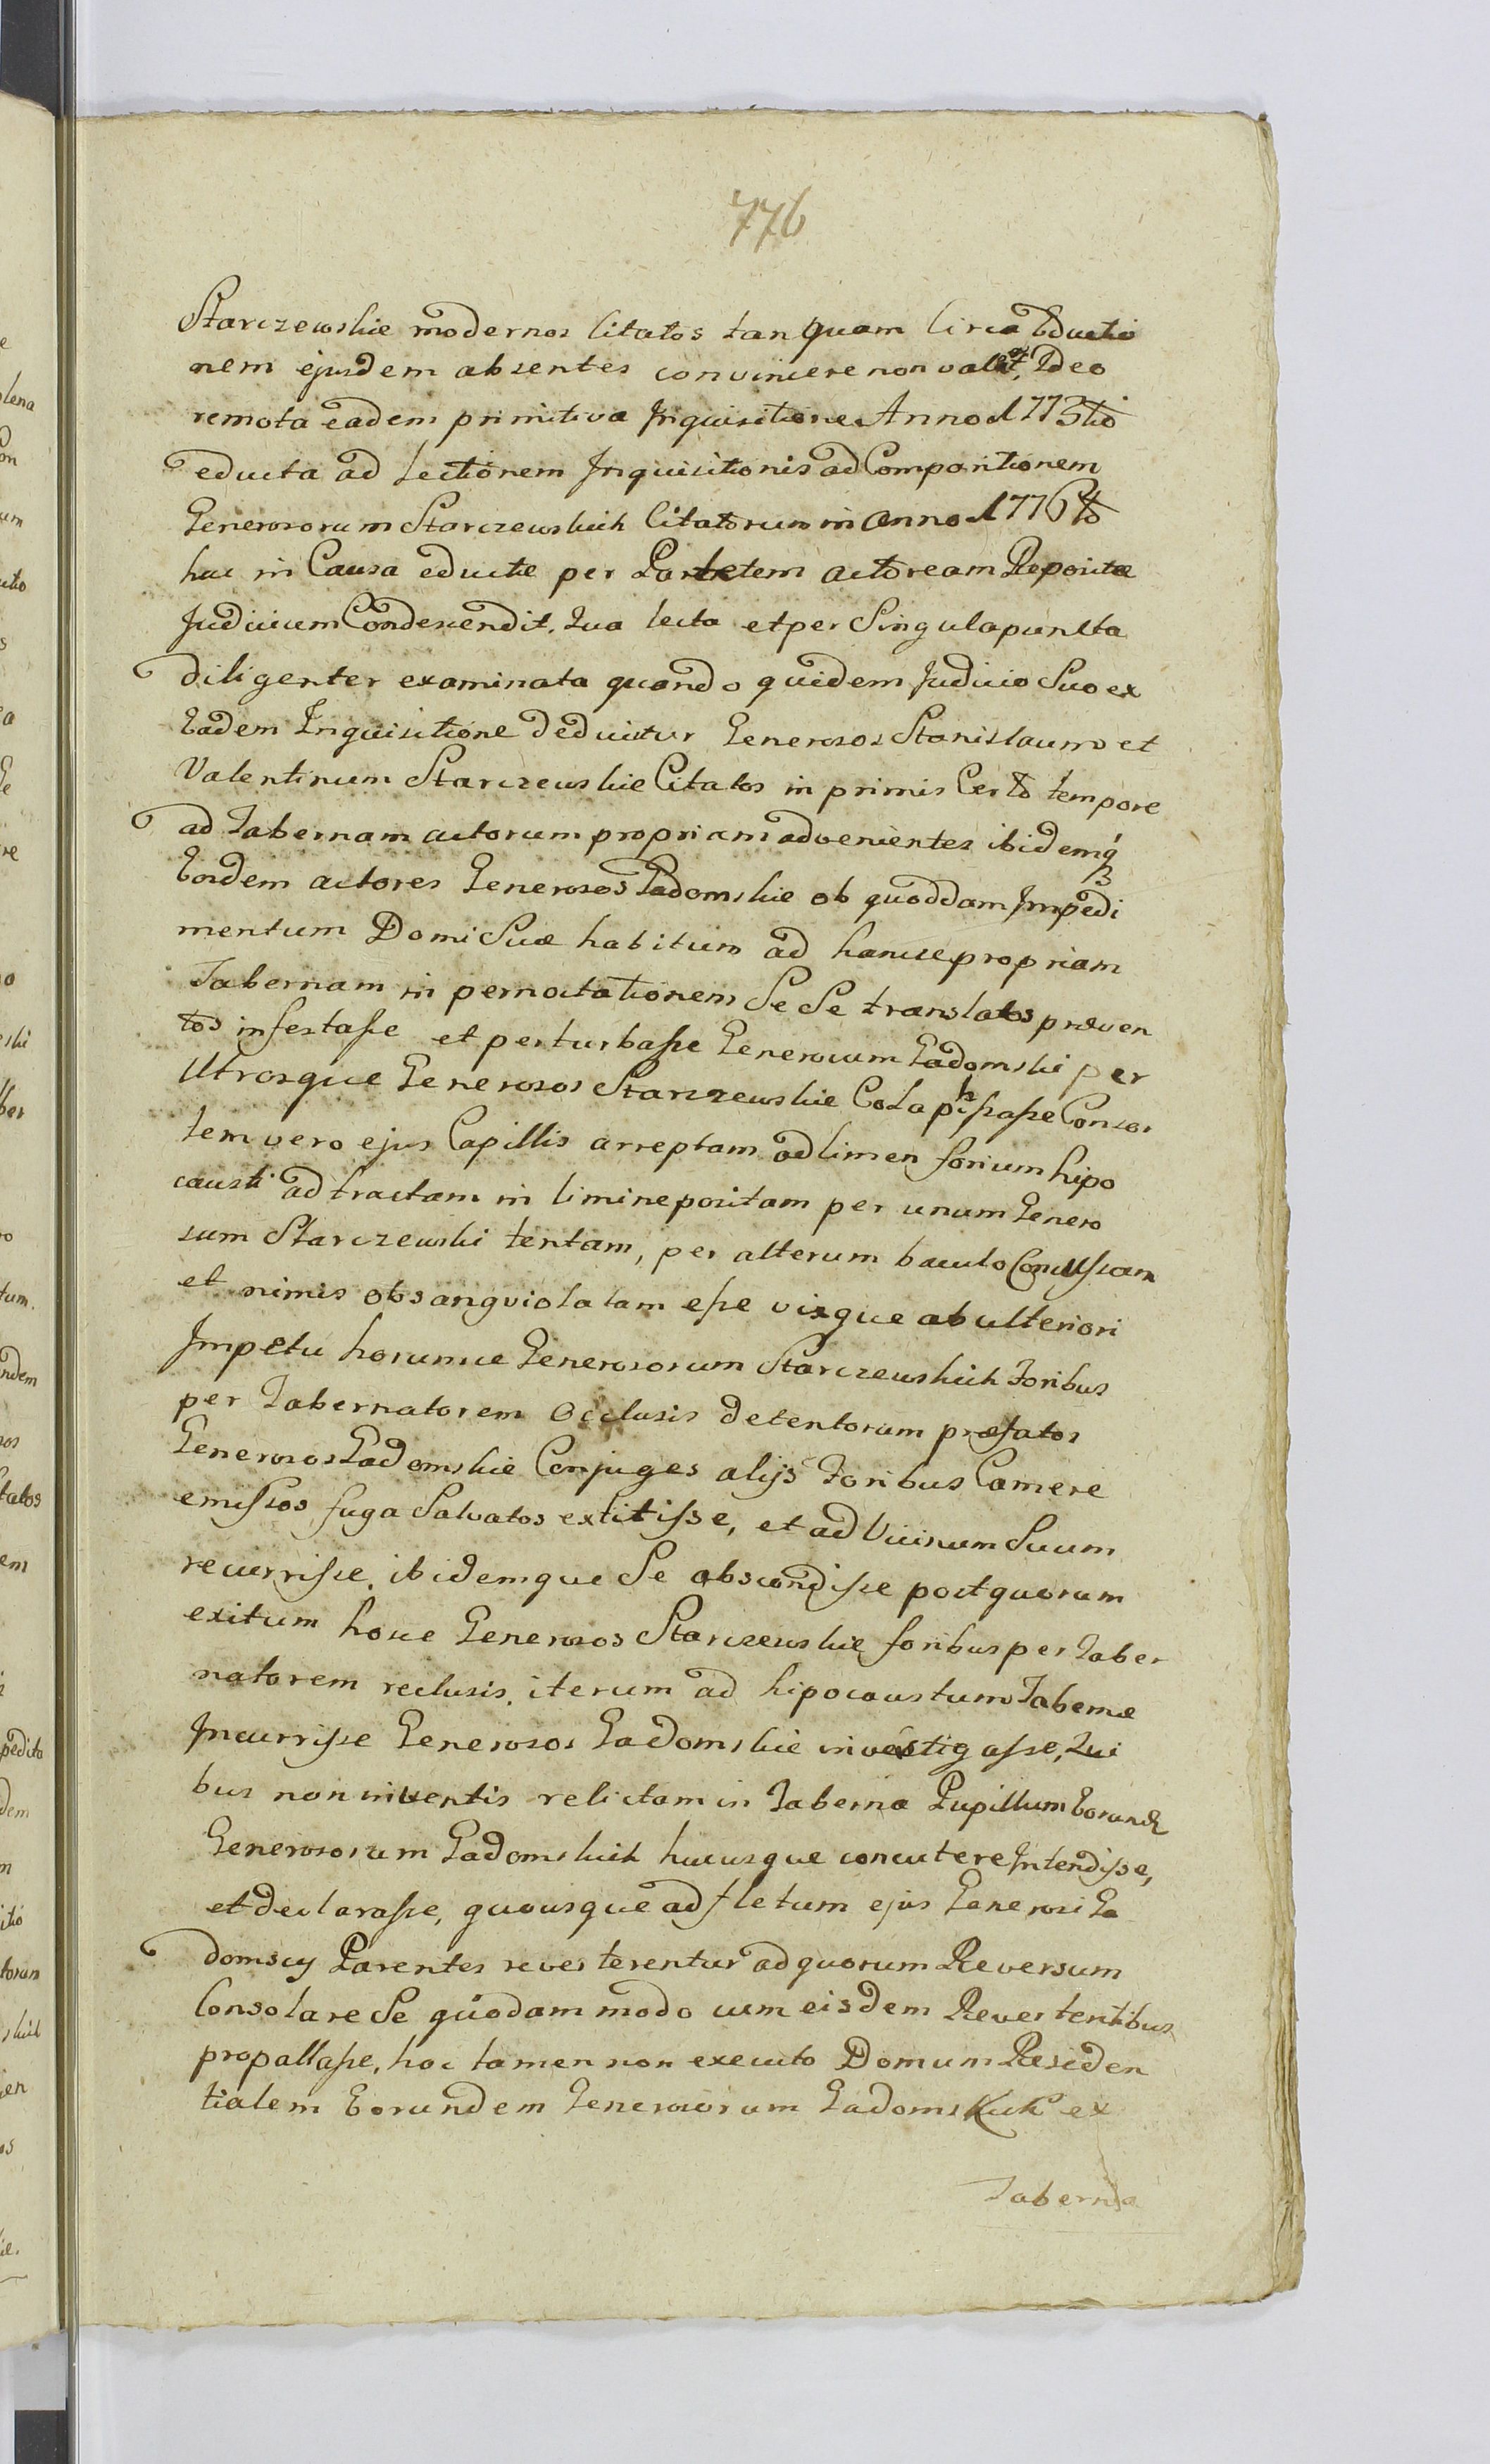 776
Starczewskie modernos Citatos tanquam circa Eductio
nem ejusdem absentes convincere non valet, Ideo
remota eadem primitiva Inquisitione Anno 1773tio
educta ad Lectionem Inquisitionis ad Comparitionem
Generosorum Starczewskich Citatorum in Anno 1776to
hac in Causa eductæ per Partem actoream Repositæ
Judicium Condescendit. Qua lecta et per Singula puncta
diligenter examinata quando quidem Judicio Suo ex
Eadem Inquisitione deducitur Generosos Stanislaum et
Valentinum Starczewskie Citatos in primis Certo tempore
ad Tabernam actorum propriam advenientes ibidemq3
Eosdem actores Generosos Gadomskie ob quoddam Impedi
mentum Domi Suæ habitum ad hancce propriam
Tabernam in pernoctationem Se Se translatos præven
tos infestasse et perturbasse Generosum Gadomski per
Utrosque Generosos Starczewskie Colaphisasse Consor
tem vero ejus Capillis arreptam ad limen forium hipo
causti adtractam in limine positam per unum Genero
sum Starczewski tentam, per alterum baculo Concussam
et nimis obsangviolatam esse vixque ab ulteriori
Impetu horumce Generosorum Starczewskich Foribus
per Tabernatorem Occlusis detentorum præfatos
Generosos Gadomskie Conjuges alijs Foribus Camere
emissos fuga Salvatos extitisse, et ad Vicinum Suum
recurrisse, ibidemque Se abscondisse post quorum
exitum hosce Generosos Starczewskie foribus per Taber
natorem reclusis, iterum ad hipocaustum Tabernæ
Incurrisse Generosos Gadomskie investigasse, Qui
bus non inventis relictam in Taberna Pupillum Eorund
Generosorum Gadomskich hucusque concutere Intendisse,
et declarasse, quousque ad fletum ejus Generosi Ga
domscy Parentes reverterentur ad quorum Reversum
Consolare Se quodam modo cum eisdem Revertentibus
propallasse, hoc tamen non executo Domum Residen
tialem Eorundem Generosorum Gadomskich ex
Taberna